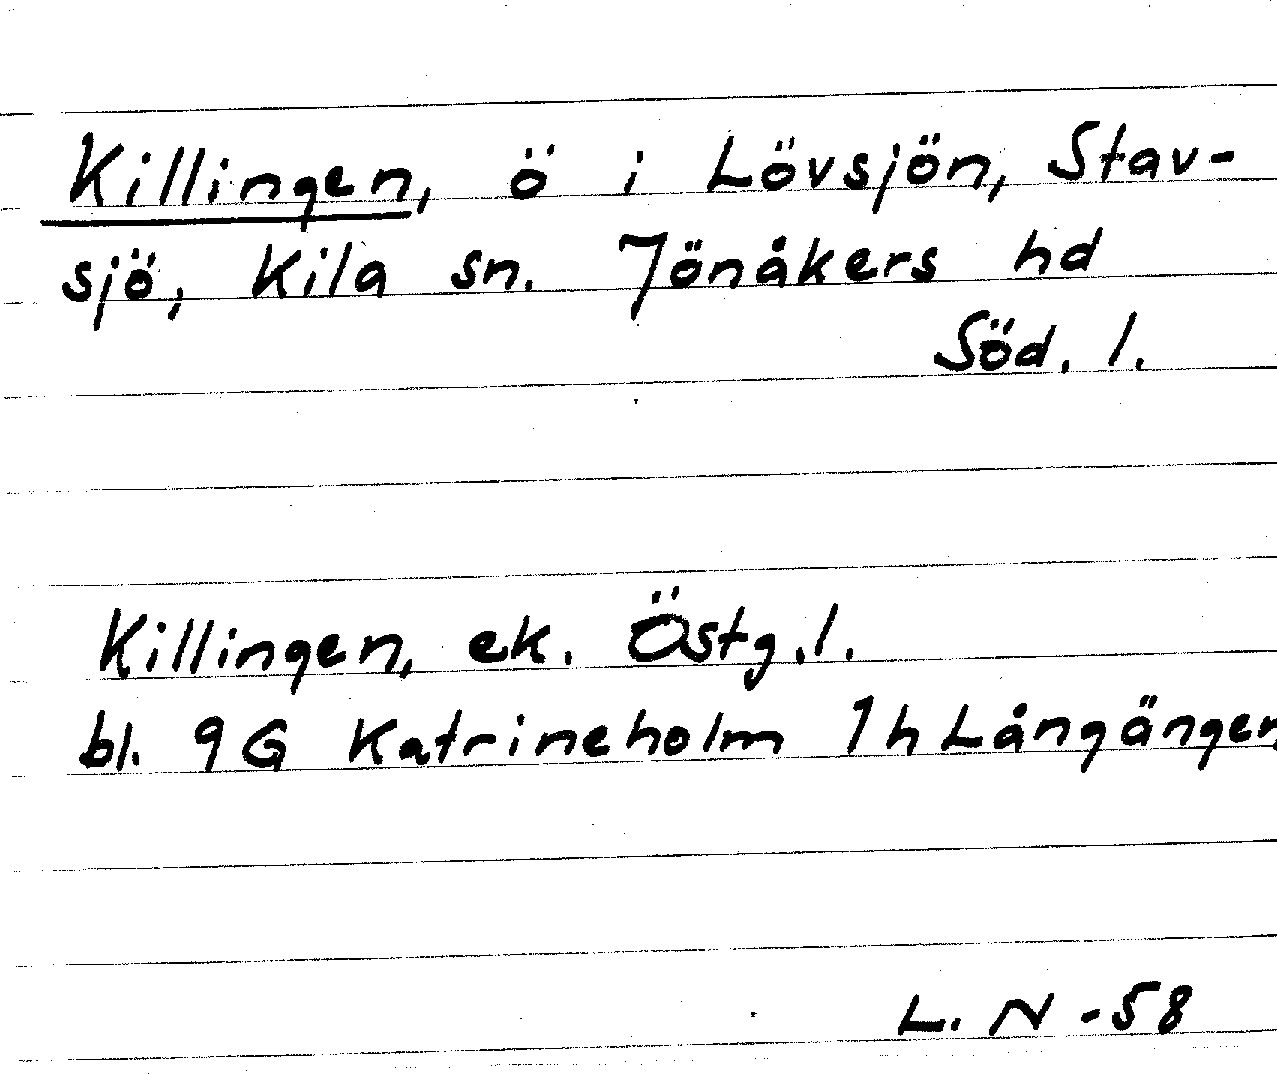 Killingen, ö i Lövsjön, Stav-
sjö, Kila sn. Jönåkers hd
Söd. l.
Killingen, ek. Östg. l.
bl. 9G Katrineholm 1h Långängen
L. N -58